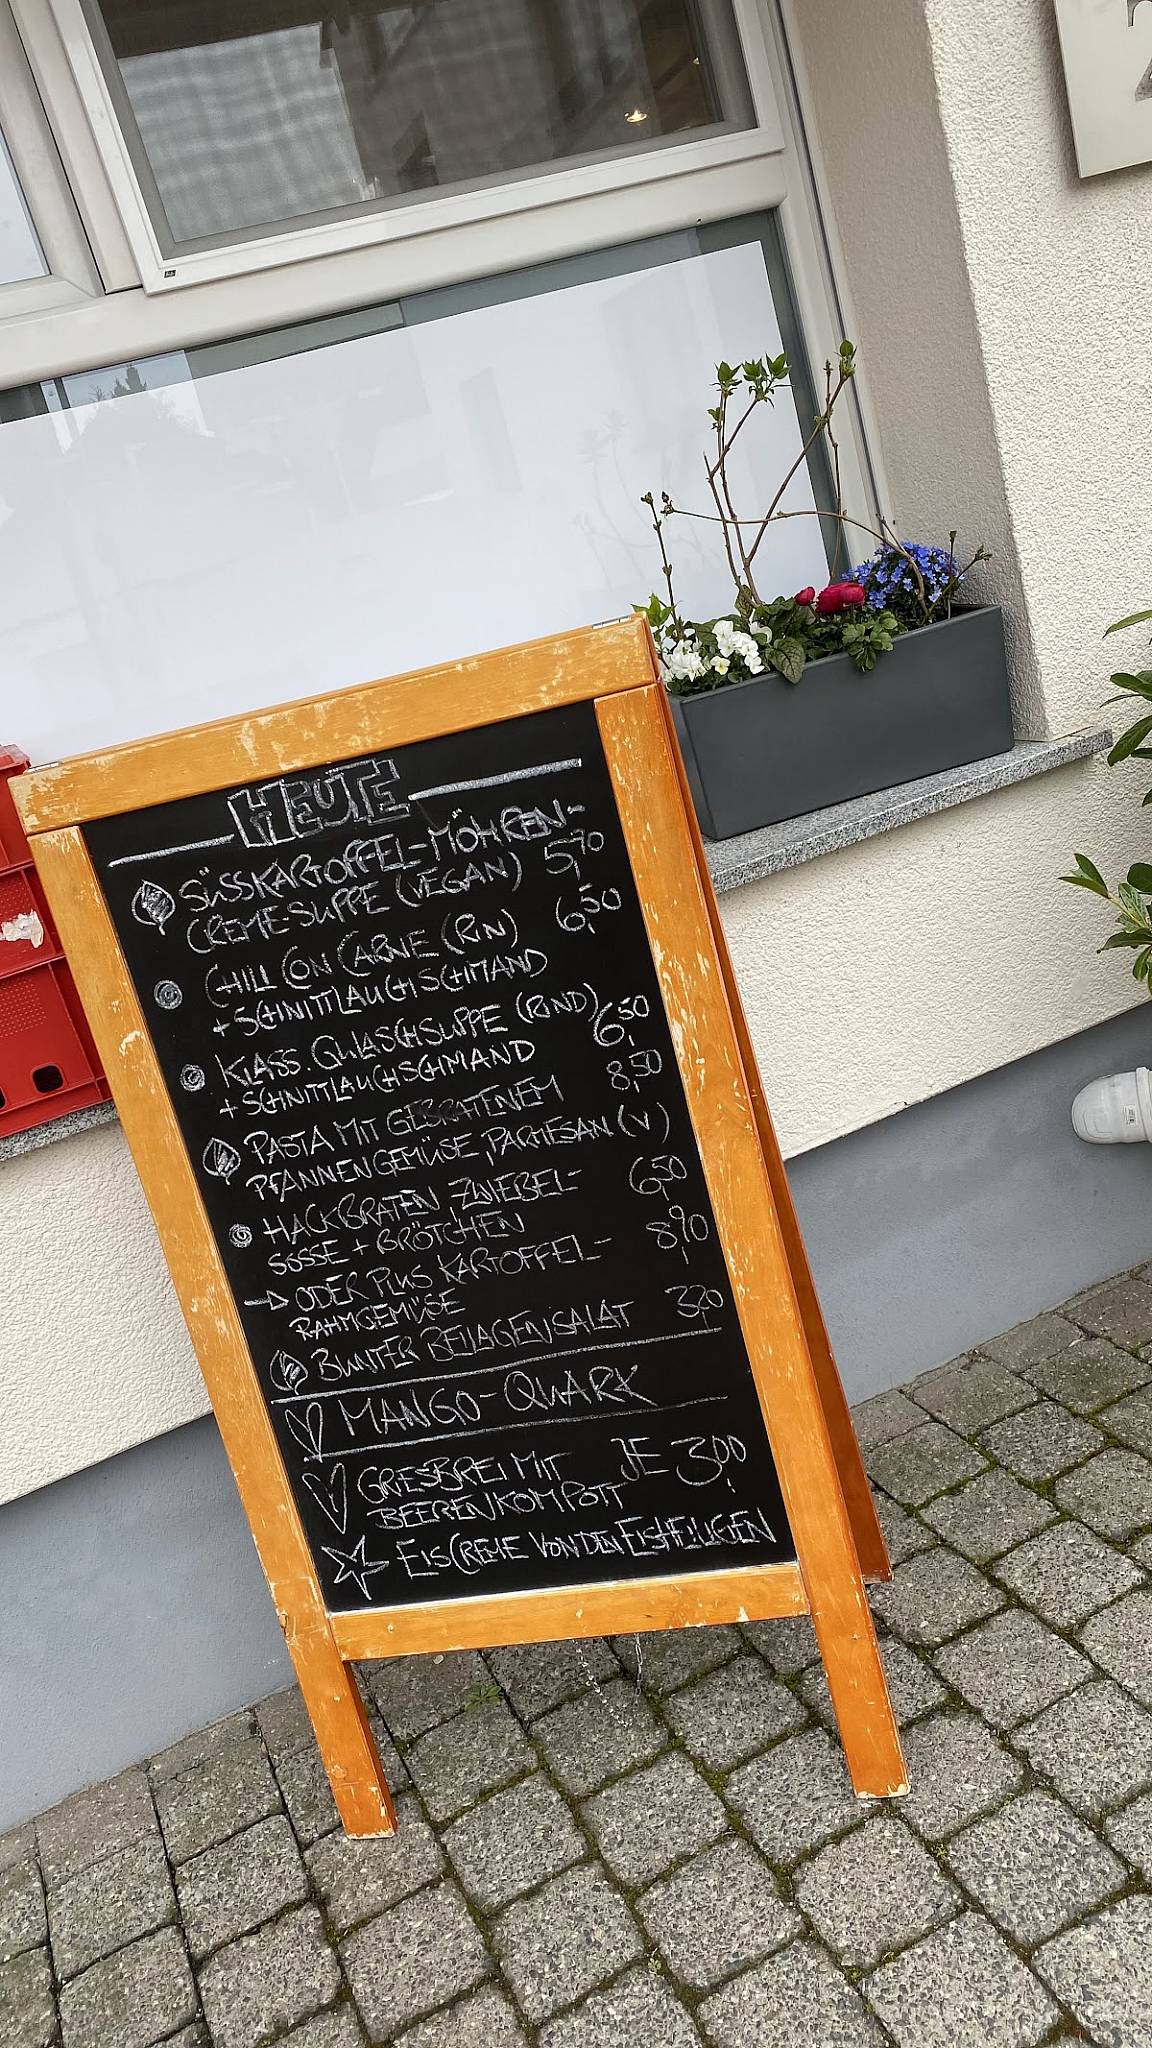 HEUTE
SÜSSKARTOFFEL-MÖHREN-
CREME-SUPPE (VEGAN) 5,70
CHILI CON CARNE (RIN) 6,50
+ SCHNITTLAUCHSCHMAND
KLASS. GULASCHSUPPE (RIND) 6,50
+ SCHNITTLAUCHSCHMAND
PASTA MIT GEBRATENEM 8,50
PFANNENGEMÜSE, PARMESAN (V)
HACKBRATEN, ZWIEBEL- 6,50
SOSSE + BRÖTCHEN
→ ODER PLUS KARTOFFEL- 8,90
RAHMGEMÜSE
BUNTER BEILAGENSALAT 3,20
MANGO-QUARK
GRIESBREI MIT JE 3,00
BEERENKOMPOTT
EISCREME VON DEN EISHEILIGEN